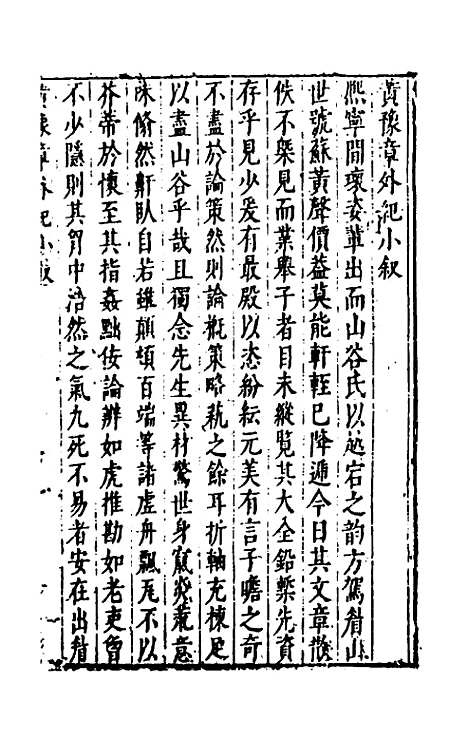 黃豫章外紀小叙
熈寧間瓌姿輩出而山谷氏以越宕之韵方駕眉山
世號蘇黃聲價益莫能軒輊已降遞今日其文章散
佚不槩見而業舉子者目未縱覽其大全鉛槧先資
存乎見少爰有最殿以恣紛紜元美有言子瞻之奇
不盡於論策然則論槪策略執之餘耳折軸充棟足
以盡山谷乎哉且獨念先生異材驚世身竄投荒意
味翛然鼾臥自若雖顛頓百端等諸虚舟飄瓦不以
芥蒂於懷至其指姦㸃佞論辨如虎推勘如老吏曾
不少隱則其胷中浩然之氣九死不易者安在出眉
黃豫章外紀小叙